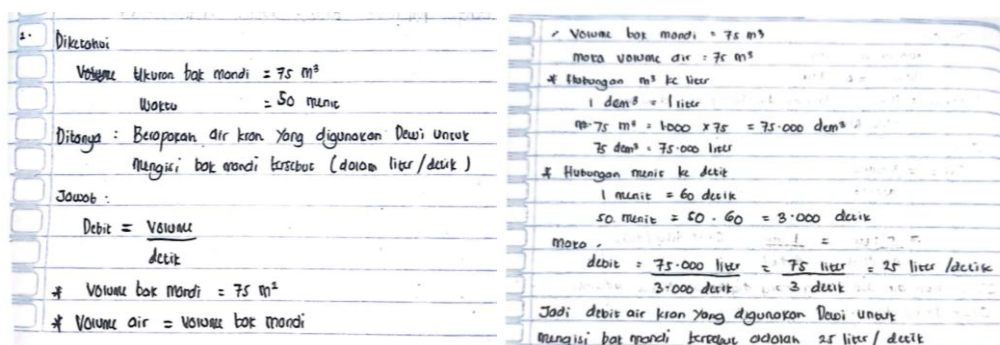 1. Diketahui
Ukuran bak mandi = 75 m³
Waktu = 50 menit
Ditanya : Berapakan air kran yang digunakan Dewi untuk
mengisi bak mandi tersebut (dalam liter/detik)
Jawab :
Debit = Volume
detik
* Volume bak mandi = 75 m²
* Volume air = volume bak mandi
Volume bak mandi = 75 m³
maka volume air = 75 m³
* Hubungan m³ ke liter
1 dem³ = 1 liter
75 m³ = 1000 x 75 = 75.000 dem³
75 dem³ = 75.000 liter
* Hubungan menit ke detik
1 menit = 60 detik
50 menit = 50 . 60 = 3.000 detik
maka,
debit = 75.000 liter = 75 liter = 25 liter /detik
3.000 detik 3 detik
Jadi debit air kran yang digunakan Dewi untuk
mengisi bak mandi tersebut adalah 25 liter/ detik